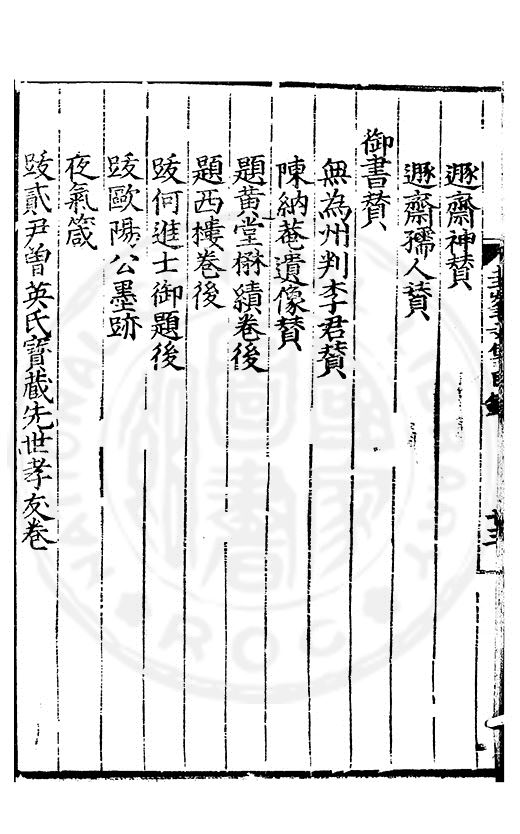 遯齋神賛
遯齋孺人賛
御書賛
無為州判李君賛
陳納菴遺像賛
題黄堂楙績卷後
題西樓卷後
跋何進士御題後
跋歐陽公墨跡
夜氣箴
跋貳尹曾英氏寳藏先世孝友卷